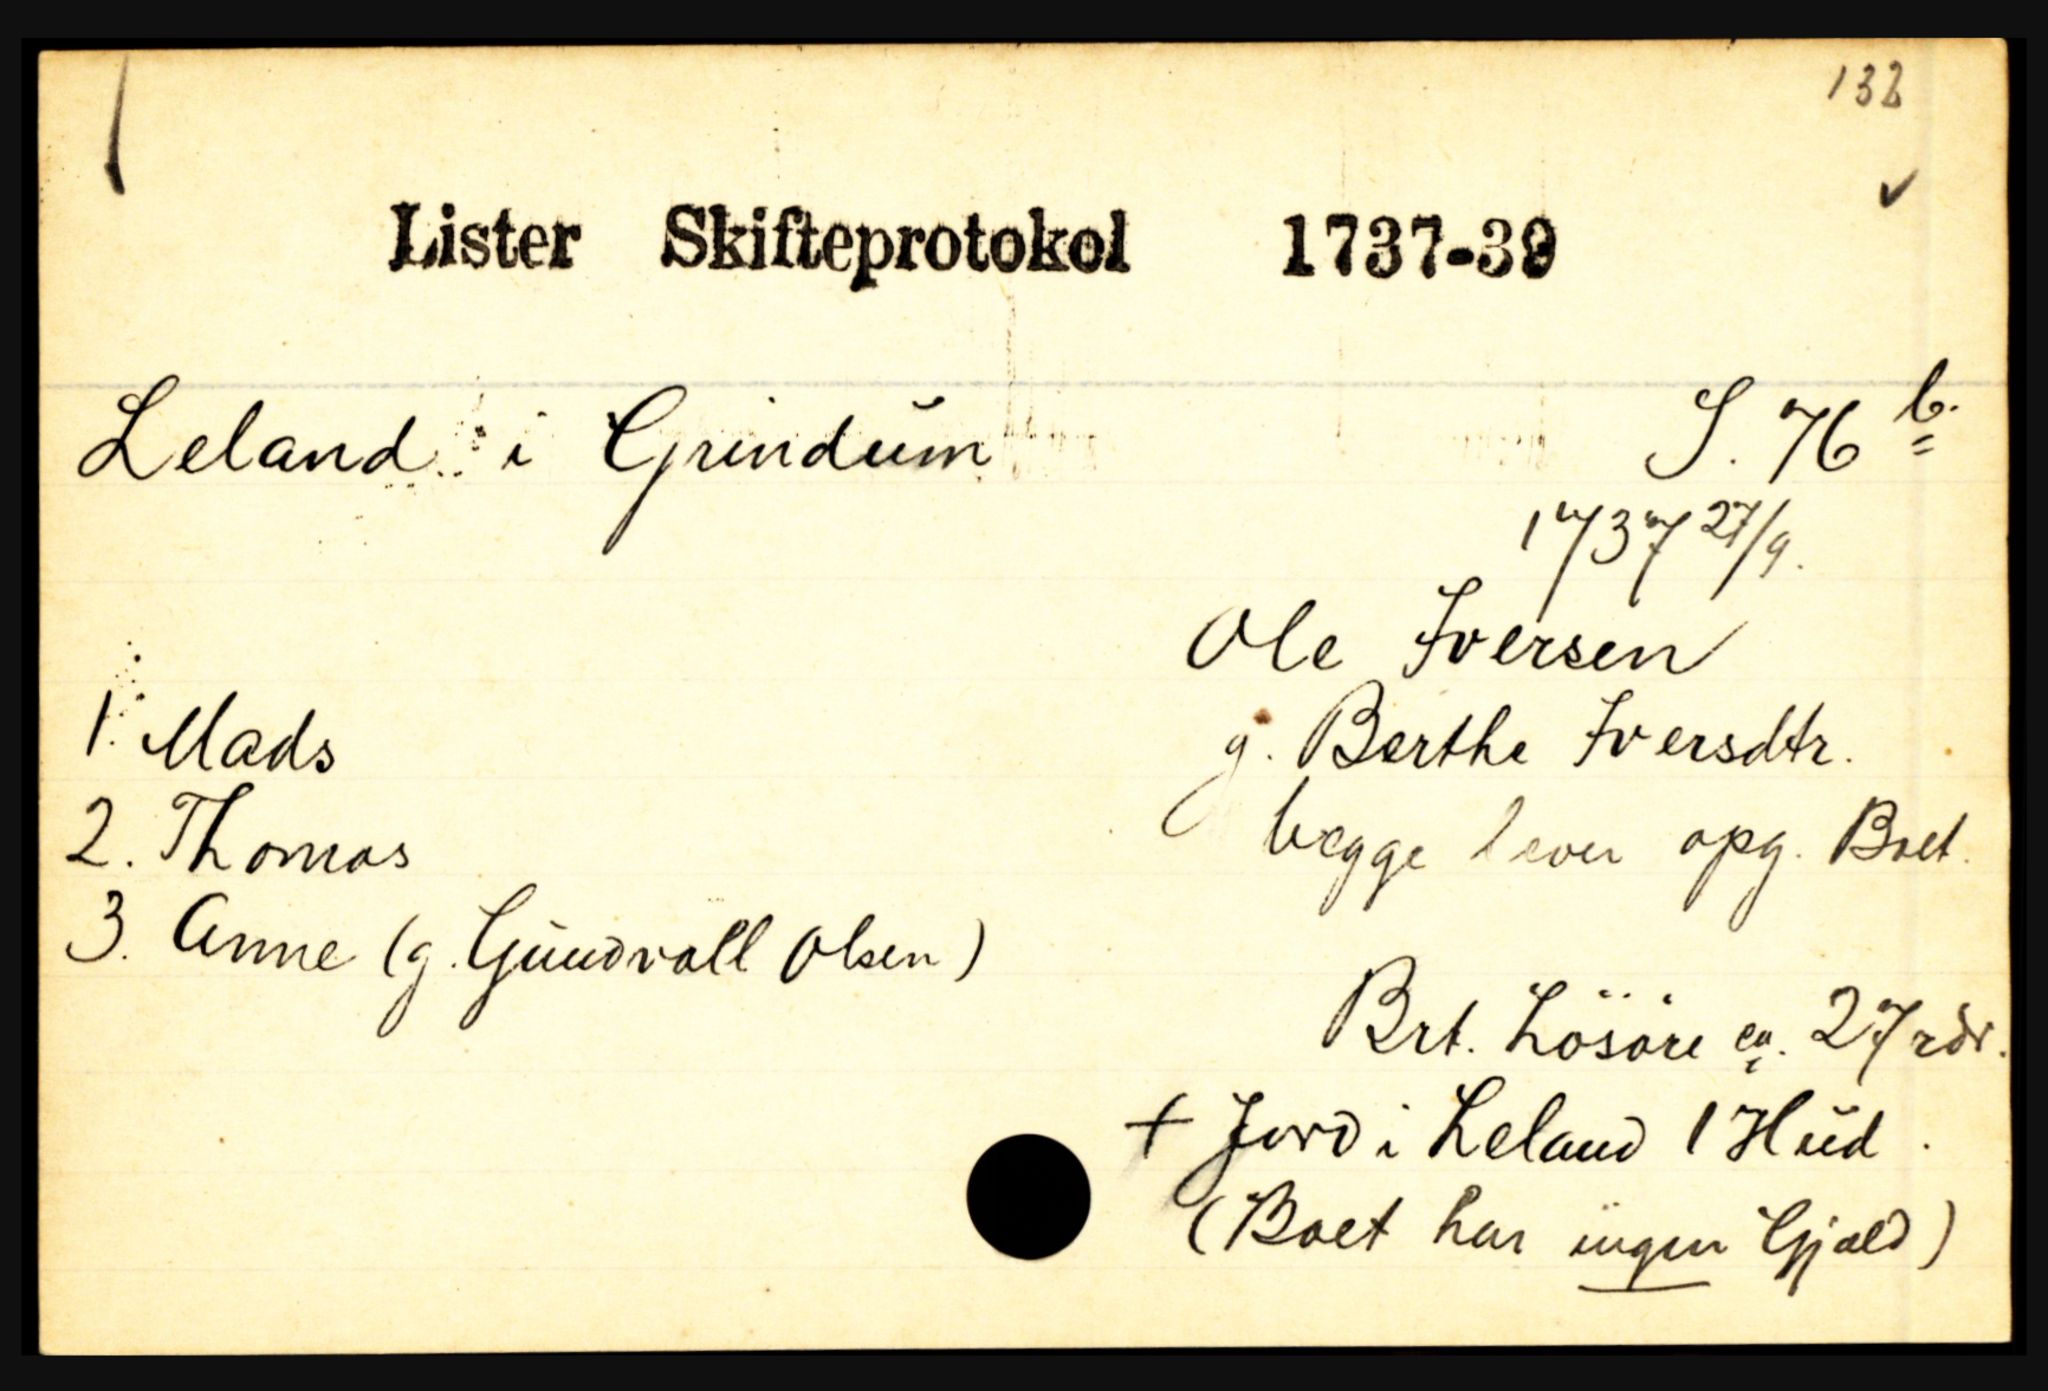 132
Lister Skifteprotokol 1737-39
Leland i Grindum S. 76 b.
1737 27/9.
Ole Iversen
g. Berthe Iversdtr.
begge lever opg. Boet.
1. Mads
2. Thomas
3. Anne (g. Gundvall Olsen)
Brt. Lösöre ca. 27 rdr.
+ Jord i Leland 1 Hud.
(Boet har ingen Gjæld)